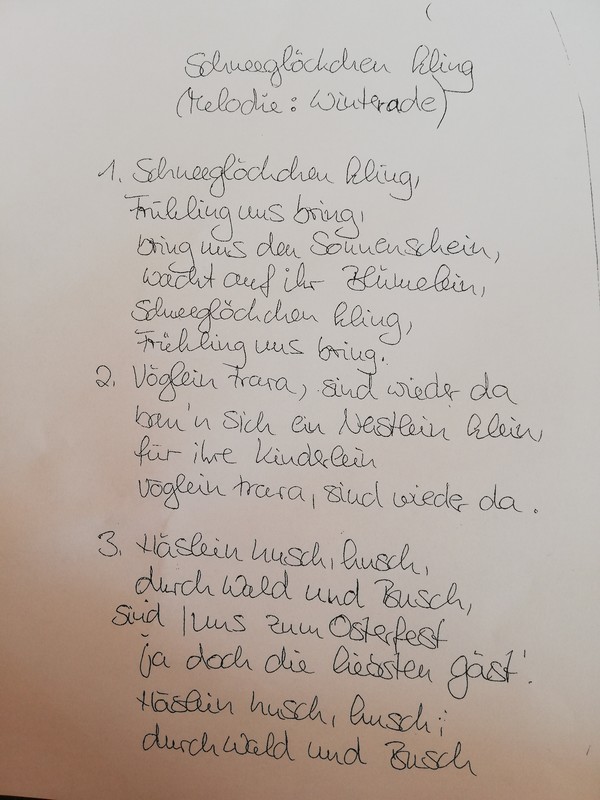 Schneeglöckchen kling
(Melodie: Winterade)
1. Schneeglöckchen kling,
Frühling uns bring,
bring uns den Sonnenschein,
wacht auf ihr Blümelein,
Schneeglöckchen kling,
Frühling uns bring.
2. Vöglein trara, sind wieder da
bau'n sich ein Nestlein klein,
für ihre Kinderlein
Vöglein trara, sind wieder da.
3. Häslein husch, husch,
durch Wald und Busch,
sind uns zum Osterfest
ja doch die liebsten gäst'.
Häslein husch, husch;
durch Wald und Busch